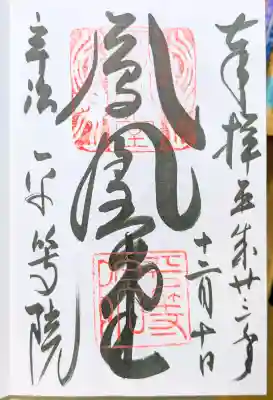 奉拝 平成廿三年
十二月十日
鳳凰堂
宇治 平等院